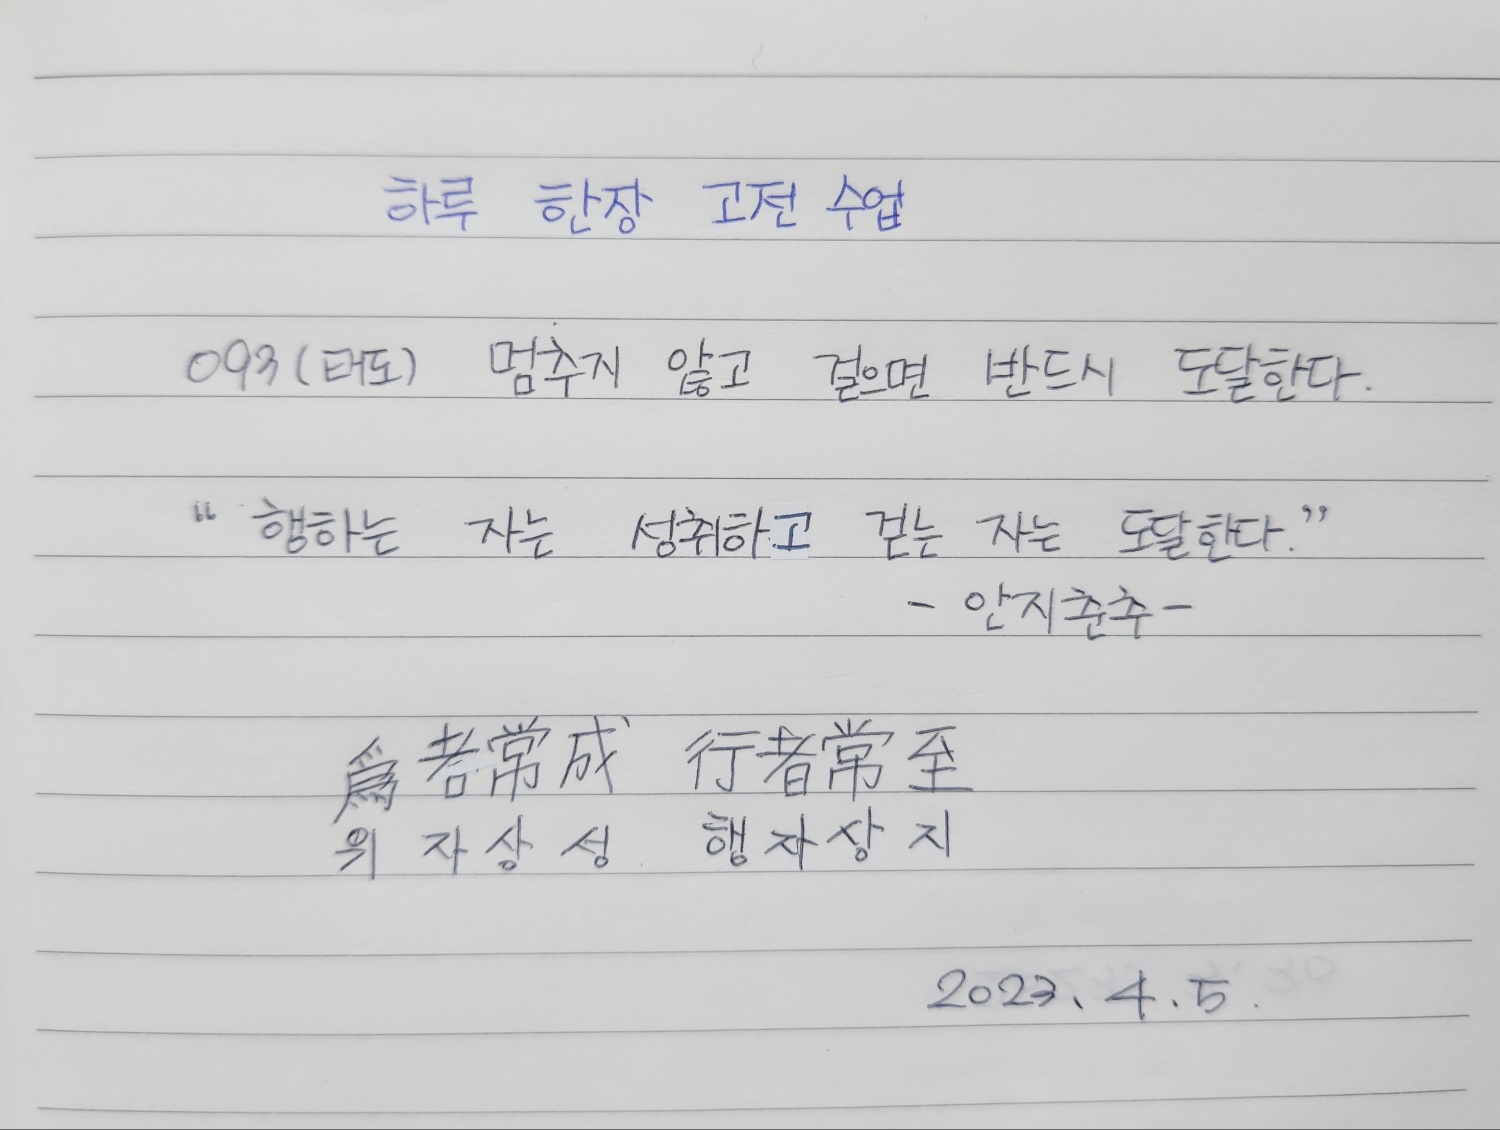 하루 한장 고전 수업
093(태도) 멈추지 않고 걸으면 반드시 도달한다.
“행하는 자는 성취하고 걷는 자는 도달한다.”
- 안자춘추 -
爲者常成 行者常至
위자상성 행자상지
2023. 4. 5.